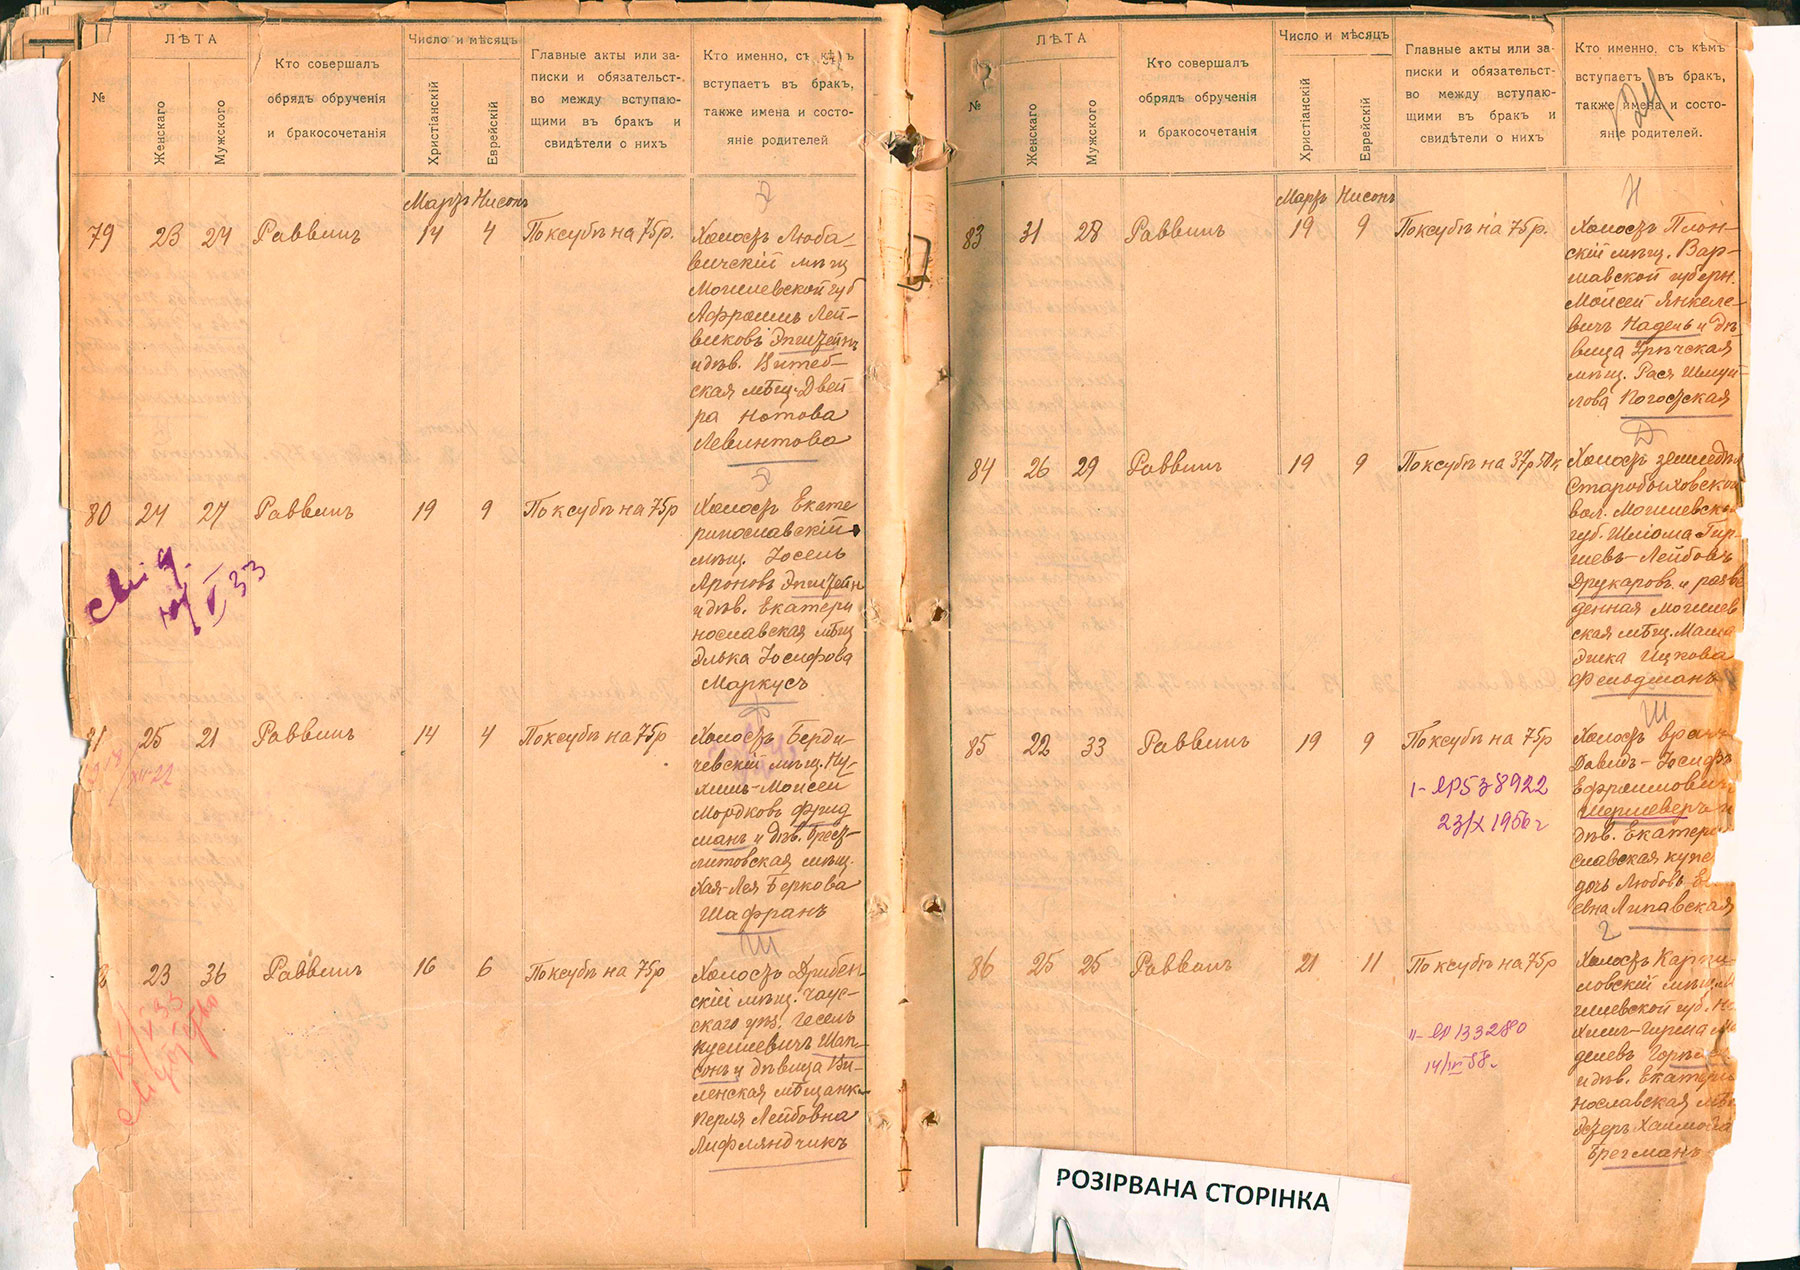 №
ЛѢТА
Женскаго
Мужского
Кто совершалъ
обрядъ обрученія
и бракосочетанія
Число и мѣсяцъ
Христіанскій
Еврейскій
Главные акты или за-
писки и обязательст-
во между вступаю-
щими въ бракъ и
свидѣтели о нихъ
Кто именно, съ кѣмъ
вступаетъ въ бракъ,
также имена и состо-
яніе родителей
Мартъ Нисонъ
79 23 24 Раввинъ 14 4 По ксубѣ на 75 р.
Холостъ Люба-
вичскій мѣщ
Могилевской губ
Афроимъ Лей-
виковъ Эпштейнъ
и дѣв. Витеб-
ская мѣщ. Двей
ра Нотова
Левинтова
80 24 27 Раввинъ 19 9 По ксубѣ на 75 р
Холостъ Екате
ринославскій
мѣщ. Іосель
Ароновъ Эпштейн
и дѣв. Екатери
нославская мѣщ
Элька Іосифова
Маркусъ
33
25 21 Раввинъ 14 4 По ксубѣ на 75 р
Холостъ Берди
чевскій мѣщ. Ну-
химъ-Моисей
Мордковъ Фрид
манъ и дѣв. Брест-
литовская мѣщ.
Хая-Лея Беркова
Шафранъ
Ш
23 36 Раввинъ 16 6 По ксубѣ на 75 р
Холостъ Дрибен
скій мѣщ. Чаус-
скаго уѣз. Гесель
Кусилевичъ Шап-
сонъ и дѣвица Ви-
ленская мѣщанк
Перля Лейбовна
Лифляндчикъ
№
ЛѢТА
Женскаго
Мужского
Кто совершалъ
обрядъ обрученія
и бракосочетанія
Число и мѣсяцъ
Христіанскій
Еврейскій
Главные акты или за-
писки и обязательст-
во между вступаю-
щими въ бракъ и
свидѣтели о нихъ
Кто именно, съ кѣмъ
вступаетъ въ бракъ,
также имена и состо-
яніе родителей.
Мартъ Нисонъ
Н
83 31 28 Раввинъ 19 9 По ксубѣ на 75 р.
Холостъ Плон-
скій мѣщ. Вар-
шавской губерн.
Мойсей Янкеле-
вичъ Надель и дѣ
вица Урѣчская
мѣщ. Рася Шмуй-
лова Погостская
Д
84 26 29 Раввинъ 19 9 По ксубѣ на 37 р 50 к
Холостъ земледѣл
Старобыховской
вол. Могилевск
губ. Шлiома Гир-
шевъ-Лейбовъ
Друкаровъ и разве
денная Могилев
ская мѣщ. Маша
Эшка Ицкова
Фельдманъ
Ш
85 22 33 Раввинъ 19 9 По ксубѣ на 75 р
I-ЯР 538922
23/X 1956 г
Холостъ врачъ
Давидъ-Іосифъ
Ефраимович
Шершеверъ и
дѣв. Екатери
славская купе
дочь Любовь
евна Липавская
Г
86 25 25 Раввинъ 21 11 По ксубѣ на 75 р
133280
Холостъ Карпи
ловскій мѣщ.
гилевской губ. Не
хемъ-Гирша
делевъ
и дѣв. Екатери
нославская мѣщ
Эстеръ Хаимова
Брегманъ
РОЗІРВАНА СТОРІНКА